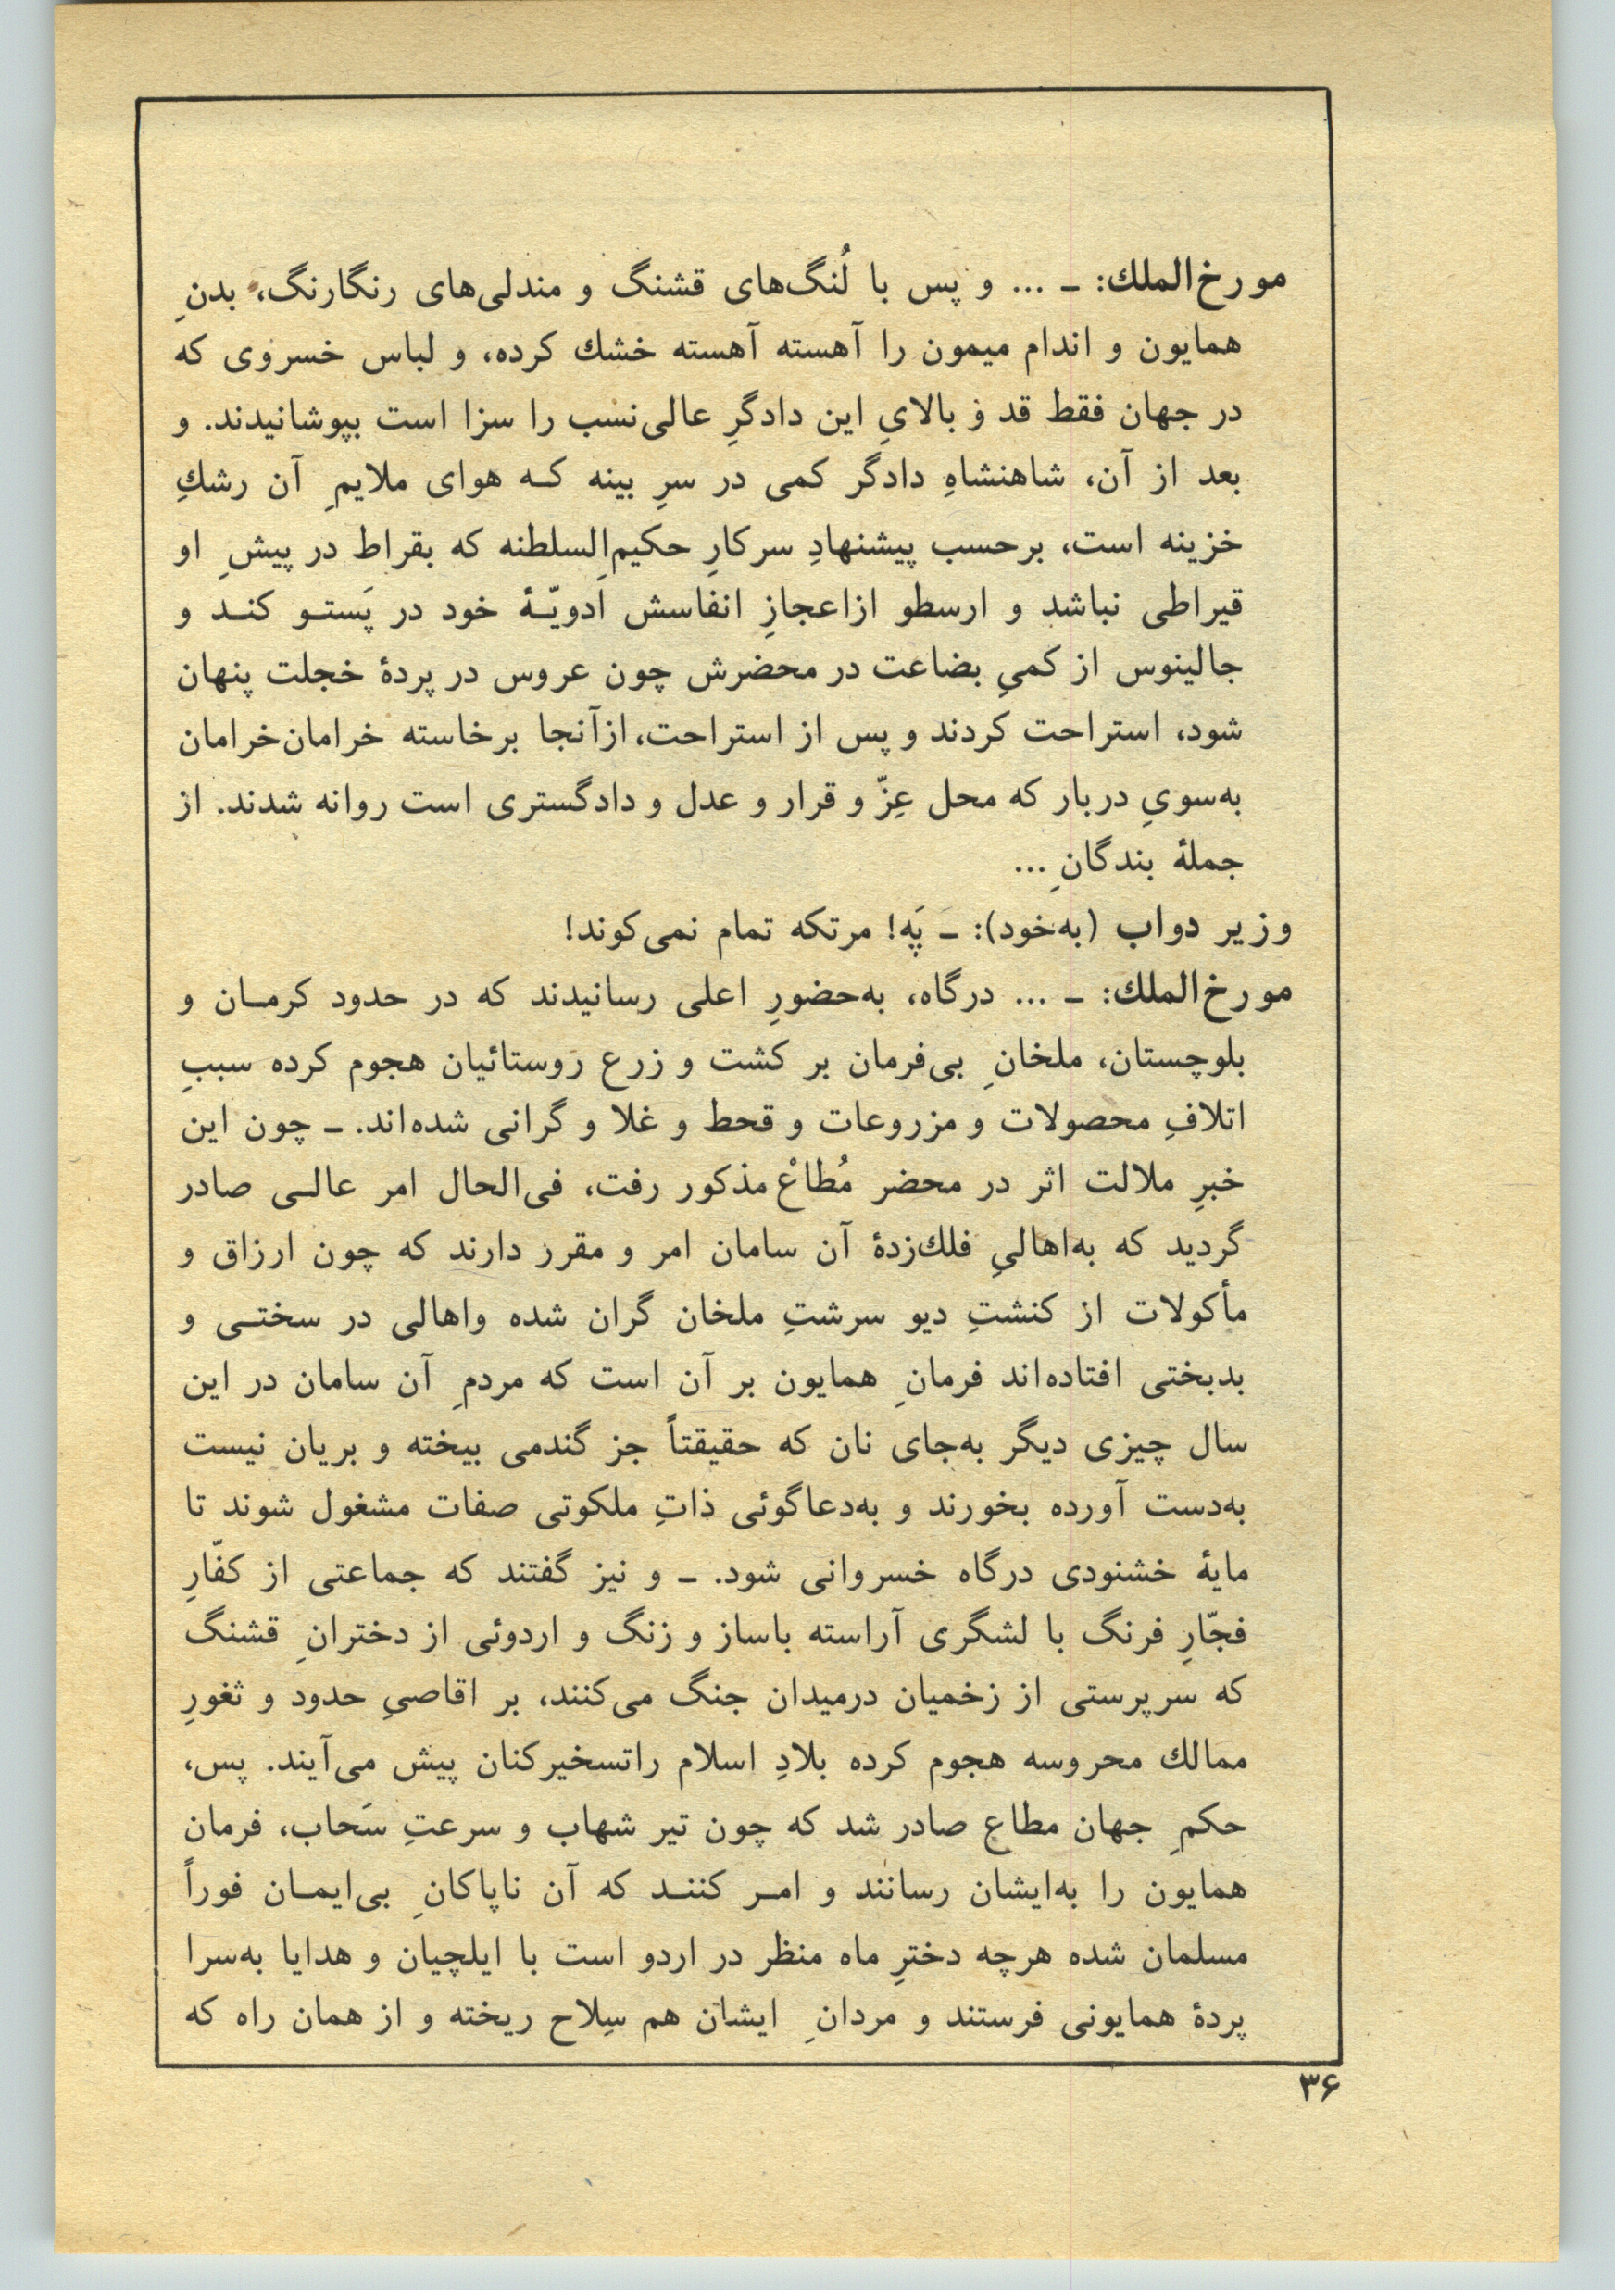 مورخ‌الملك: ـ ... و پس با لُنگ‌های قشنگ و مندلی‌های رنگارنگ، بدنِ
همایون و اندام میمون را آهسته آهسته خشك کرده، و لباس خسروی که
در جهان فقط قد و بالایِ این دادگرِ عالی‌نسب را سزا است بپوشانیدند. و
بعد از آن، شاهنشاهِ دادگر کمی در سرِ بینه کـه هوای ملایمِ آن رشكِ
خزینه است، برحسب پیشنهادِ سرکارِ حکیم‌السلطنه که بقراط در پیشِ او
قیراطی نباشد و ارسطو ازاعجازِ انفاسش اَدویّـهٔ خود در پَستـو کنـد و
جالینوس از کمیِ بضاعت در محضرش چون عروس در پردهٔ خجلت پنهان
شود، استراحت کردند و پس از استراحت، ازآنجا برخاسته خرامان‌خرامان
به‌سویِ دربار که محل عِزّ و قرار و عدل و دادگستری است روانه شدند. از
جملهٔ بندگانِ ...
وزیر دواب (به‌خود): ـ پَه! مرتکه تمام نمی‌کوند!
مورخ‌الملك: ـ ... درگاه، به‌حضورِ اعلی رسانیدند که در حدود کرمـان و
بلوچستان، ملخانِ بی‌فرمان بر کشت و زرع روستائیان هجوم کرده سببِ
اتلافِ محصولات و مزروعات و قحط و غلا و گرانی شده‌اند. ـ چون این
خبرِ ملالت اثر در محضر مُطاعْ مذکور رفت، فی‌الحال امر عالـی صادر
گردید که به‌اهالیِ فلك‌زدهٔ آن سامان امر و مقرر دارند که چون ارزاق و
مأکولات از کنشتِ دیو سرشتِ ملخان گران شده واهالی در سختـی و
بدبختی افتاده‌اند فرمانِ همایون بر آن است که مردمِ آن سامان در این
سال چیزی دیگر به‌جای نان که حقیقتاً جز گندمی بیخته و بریان نیست
به‌دست آورده بخورند و به‌دعاگوئی ذاتِ ملکوتی صفات مشغول شوند تا
مایهٔ خشنودی درگاه خسروانی شود. ـ و نیز گفتند که جماعتی از کفّارِ
فجّارِ فرنگ با لشگری آراسته باساز و زنگ و اردوئی از دخترانِ قشنگ
که سرپرستی از زخمیان درمیدان جنگ می‌کنند، بر اقاصیِ حدود و ثغورِ
ممالك محروسه هجوم کرده بلادِ اسلام راتسخیرکنان پیش می‌آیند. پس،
حکمِ جهان مطاع صادر شد که چون تیر شهاب و سرعتِ سَحاب، فرمان
همایون را به‌ایشان رسانند و امـر کننـد که آن ناپاکانِ بی‌ایمـان فوراً
مسلمان شده هرچه دخترِ ماه منظر در اردو است با ایلچیان و هدایا به‌سرا
پردهٔ همایونی فرستند و مردانِ ایشان هم سِلاح ریخته و از همان راه که
۳۶